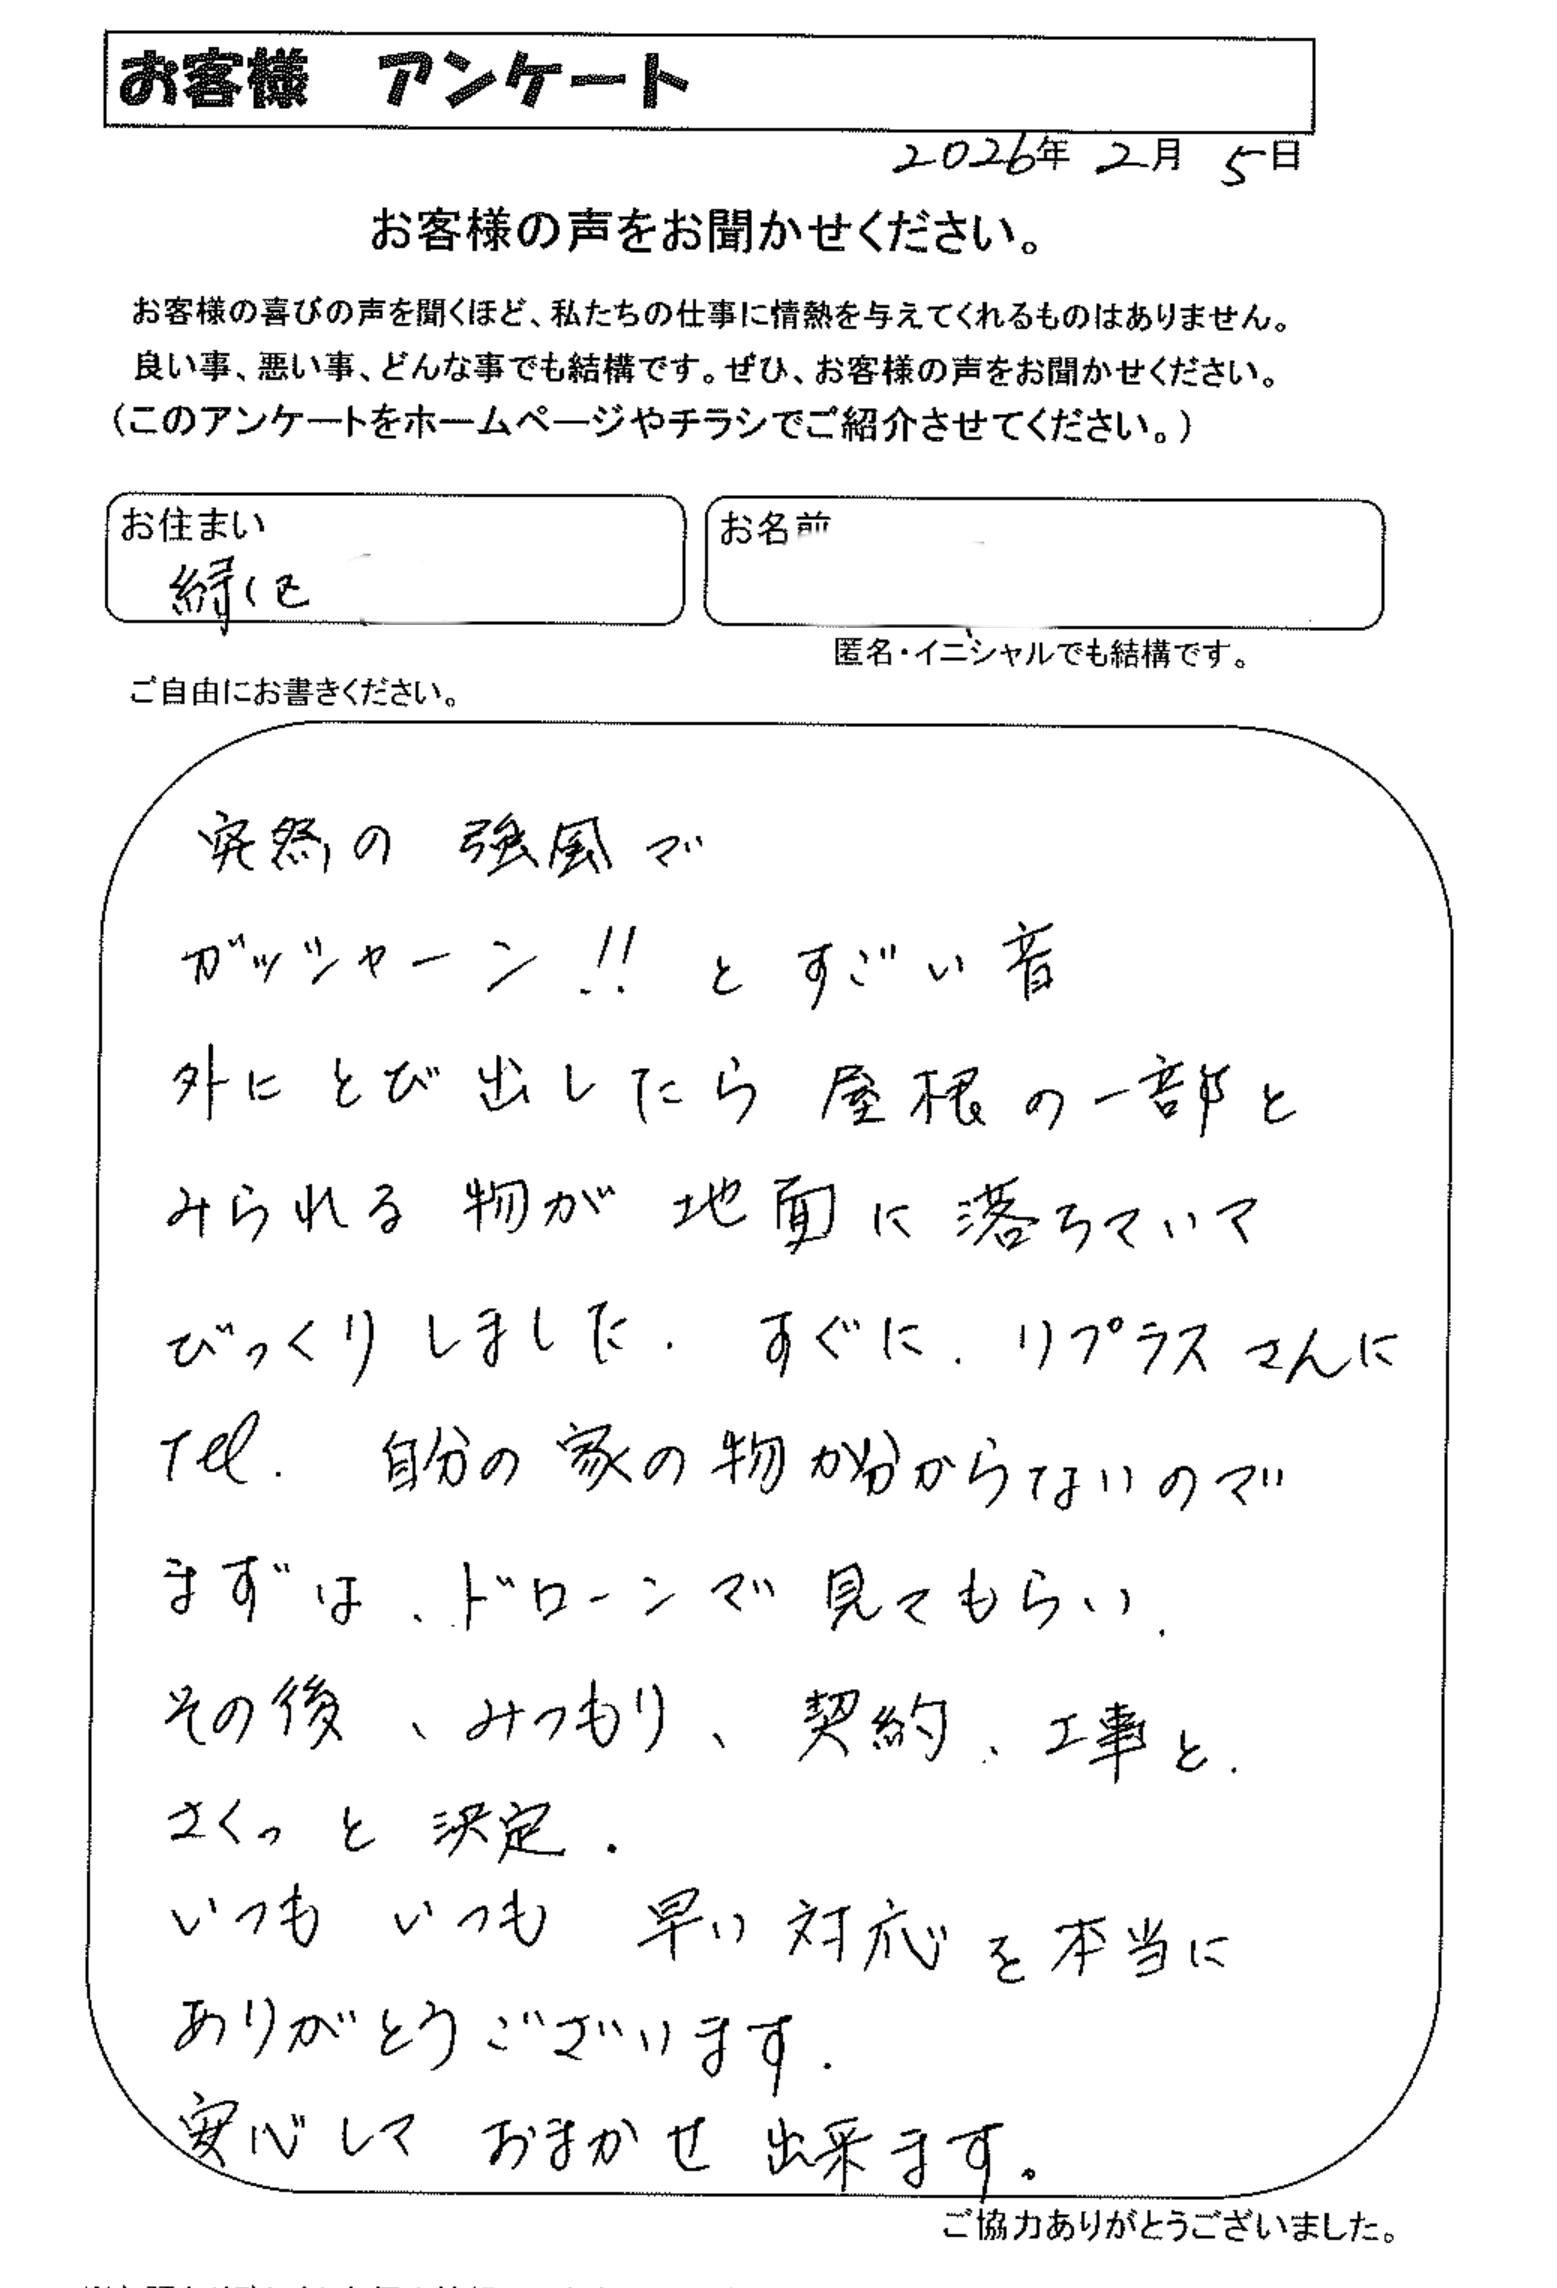 お客様　アンケート
2026年 2月 5日
お客様の声をお聞かせください。
お客様の喜びの声を聞くほど、私たちの仕事に情熱を与えてくれるものはありません。
良い事、悪い事、どんな事でも結構です。ぜひ、お客様の声をお聞かせください。
（このアンケートをホームページやチラシでご紹介させてください。）
お住まい
緑区
お名前
匿名・イニシャルでも結構です。
ご自由にお書きください。
突然の 強風で
ガッシャーン!! と すごい音
外に とび出したら 屋根の一部と
みられる 物が 地面に 落ちていて
びっくりしました. すぐに. リプラスさんに
Tel. 自分の家の物か分からないので
まずは、ドローンで 見てもらい.
その後、みつもり、契約、工事と.
さくっと 決定.
いつも いつも 早い 対応を本当に
ありがとうございます.
安心して おまかせ 出来ます。
ご協力ありがとうございました。